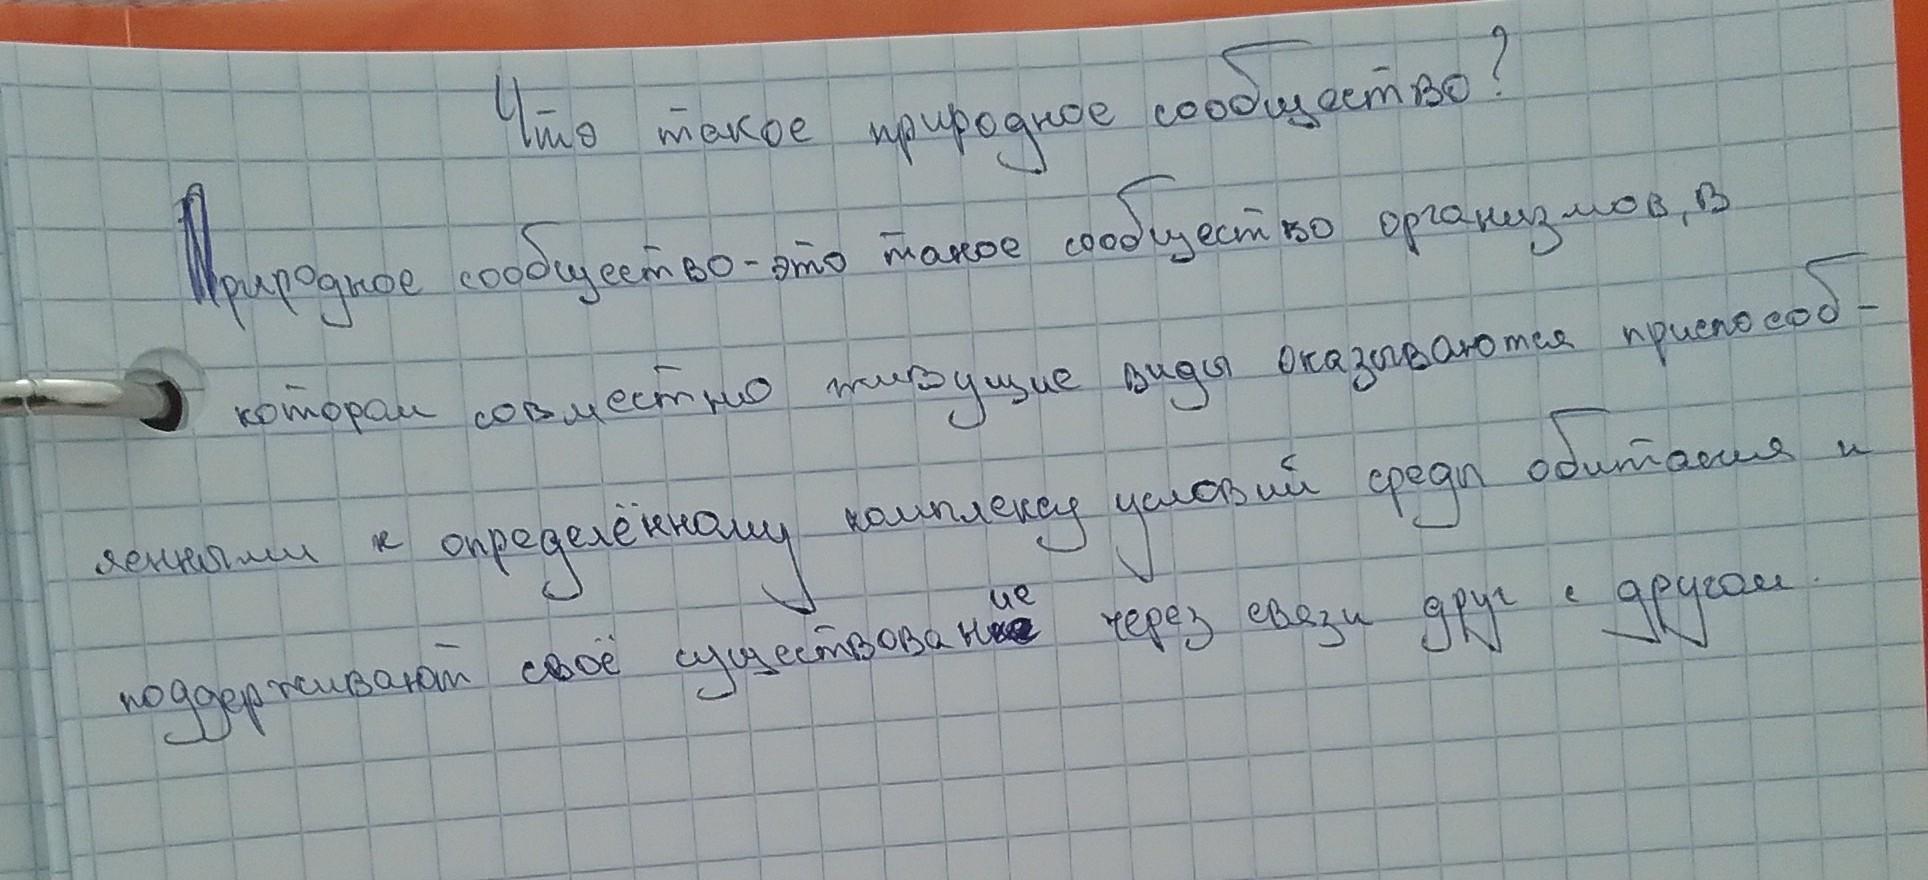 Что такое природное сообщество?
Природное сообщество-это такое сообщество организмов, в
котором совместно живущие виды оказываются приспособ-
ленными к определённому комплексу условий среды обитания и
поддерживают своё существование через связи друг с другом.